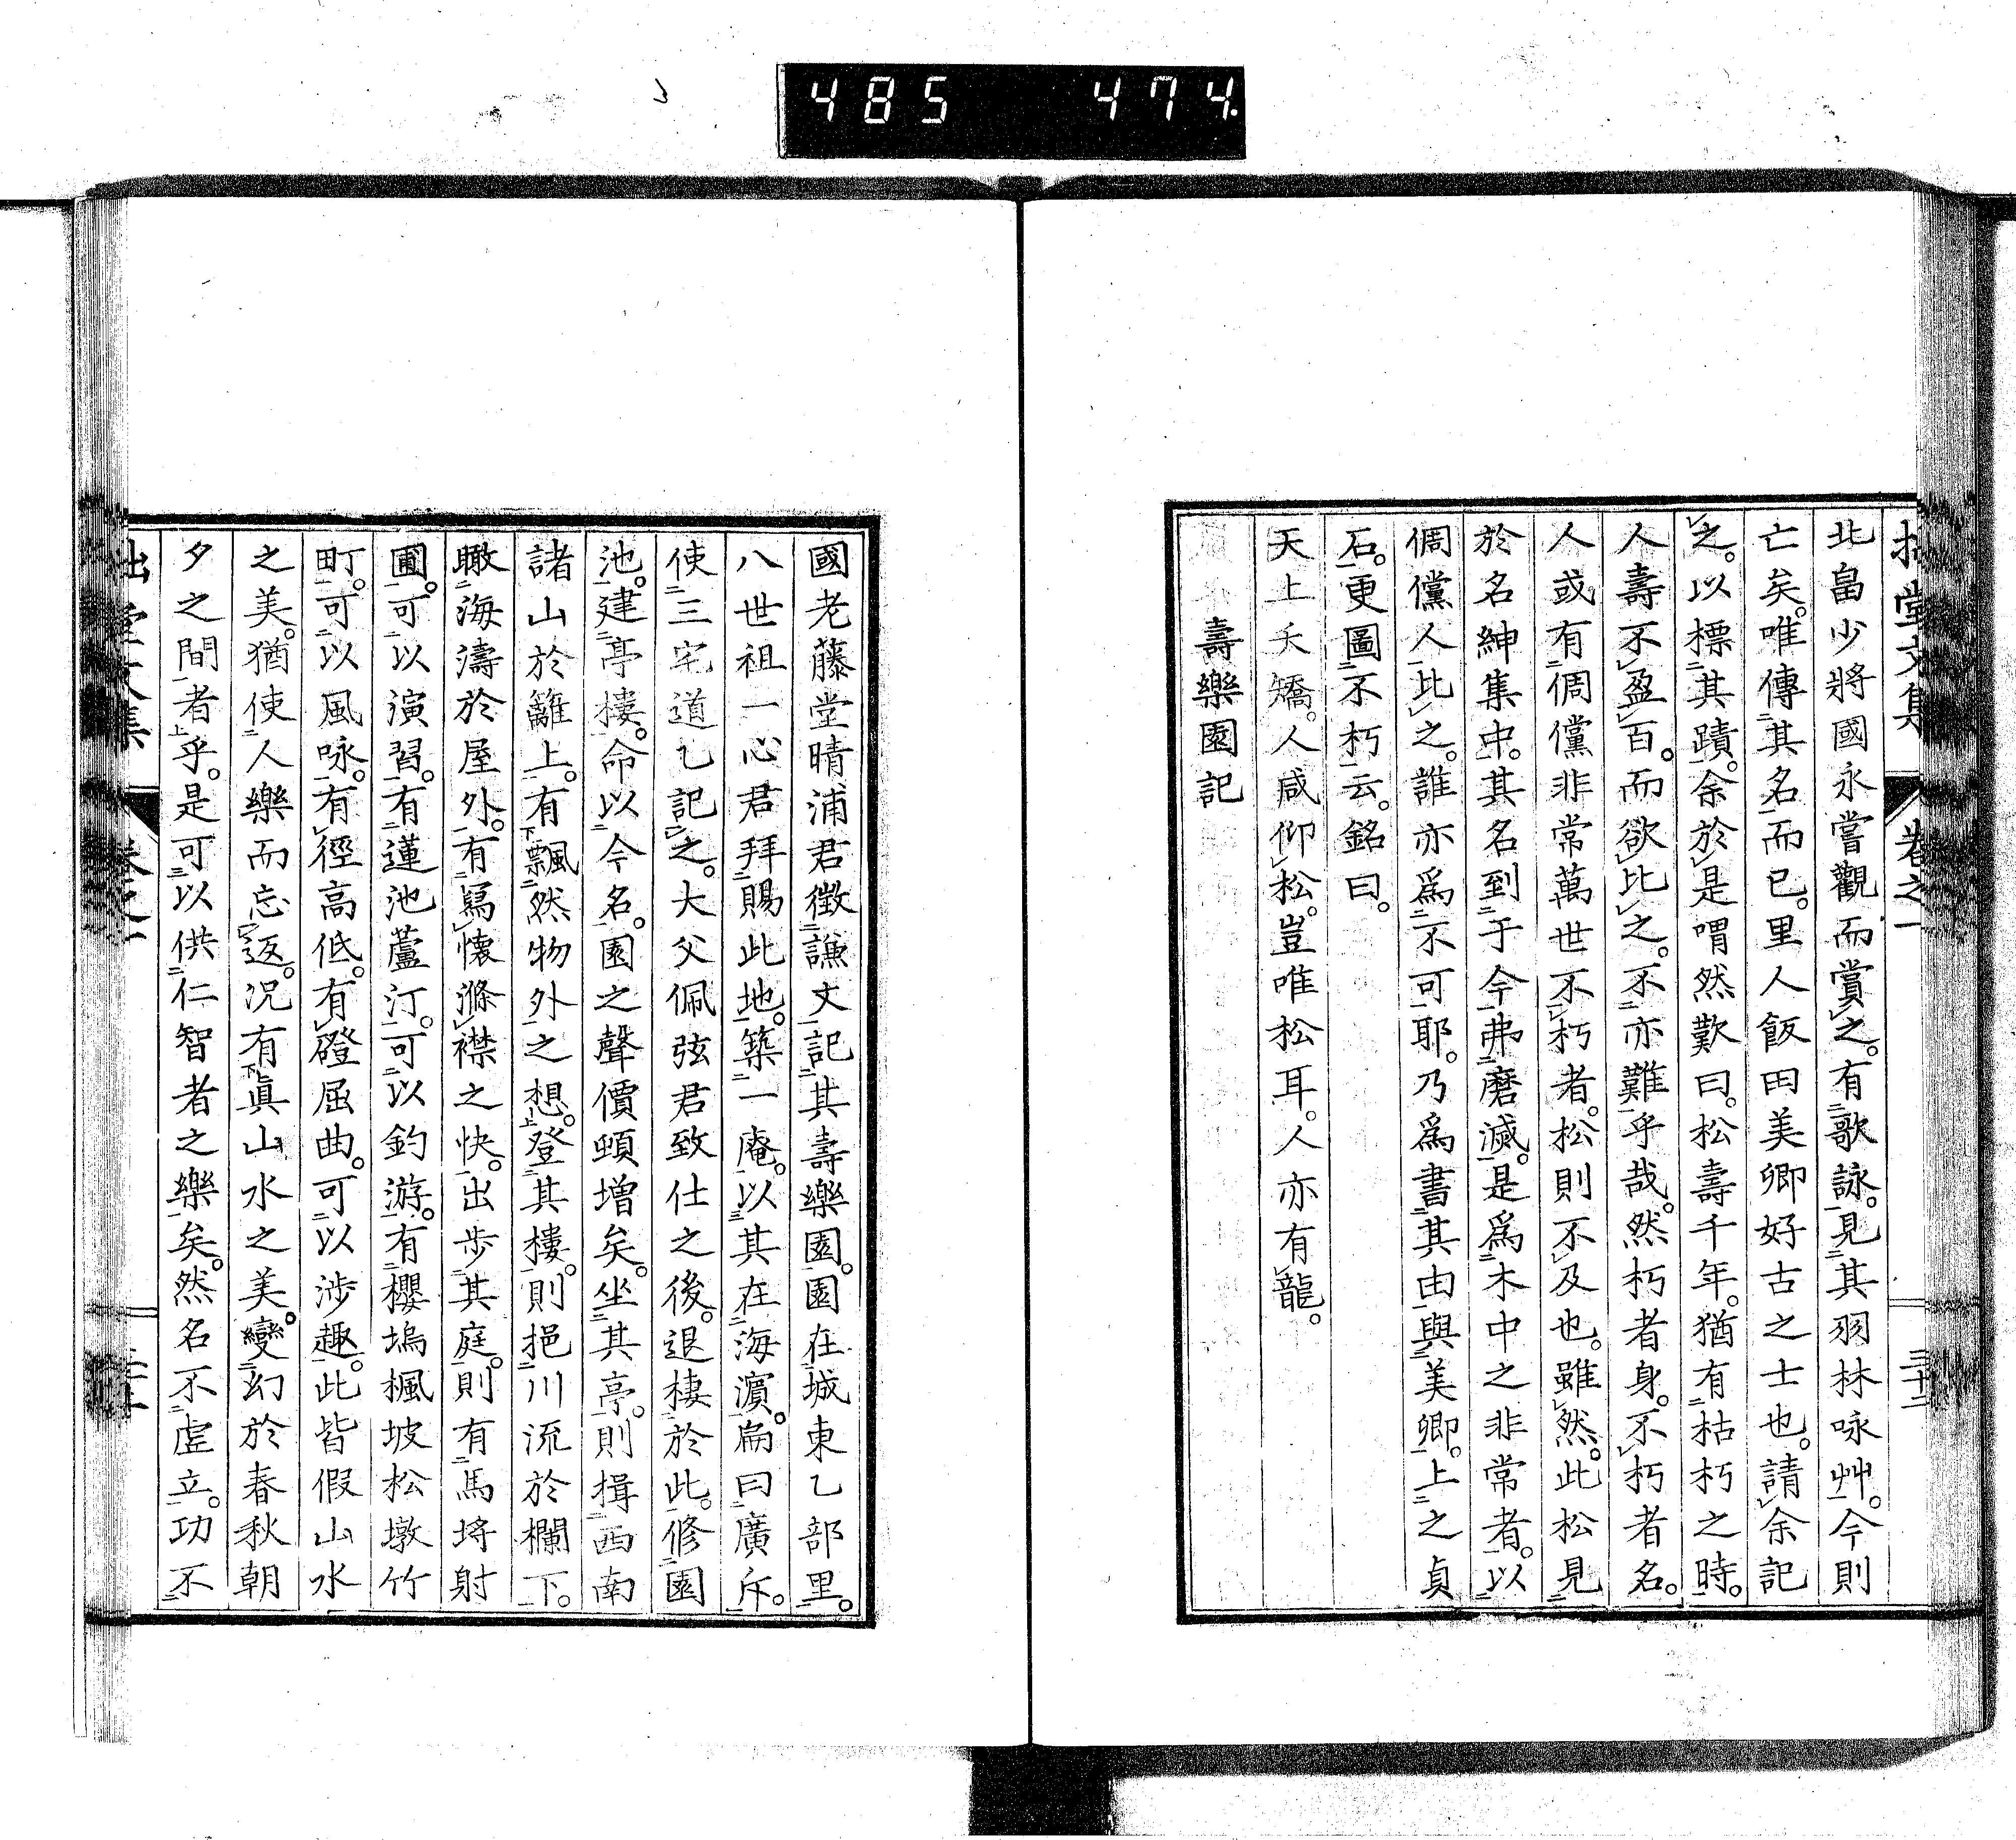 485 474
拙堂文集 卷之一 三十二
北畠少將國永嘗觀而賞之。有歌詠。見其羽林咏艸。今則
亡矣。唯傳其名而已。里人飯田美卿好古之士也。請余記
之。以標其蹟。余於是喟然歎曰。松壽千年。猶有枯朽之時。
人壽不盈百。而欲比之。不亦難乎哉。然朽者身。不朽者名。
人或有倜儻非常萬世不朽者。松則不及也。雖然。此松見
於名紳集中。其名到于今弗磨滅。是爲木中之非常者。以
倜儻人比之。誰亦爲不可耶。乃爲書其由與美卿。上之貞
石。更圖不朽云。銘曰。
天上夭矯。人咸仰松。豈唯松耳。人亦有龍。
壽樂園記
國老藤堂晴浦君徵謙文記其壽樂園。園在城東乙部里。
八世祖一心君拜賜此地。築一庵。以其在海濵。扁曰廣斥。
使三宅道乙記之。大父佩弦君致仕之後。退棲於此。修園
池。建亭樓。命以今名。園之聲價頓增矣。坐其亭。則揖西南
諸山於籬上。有飄然物外之想。登其樓。則挹川流於欄下。
瞰海濤於屋外。有寫懷滌襟之快。出步其庭。則有馬埒射
圃。可以演習。有蓮池蘆汀。可以釣游。有櫻塢楓坡松墩竹
町。可以風咏。有徑高低。有磴屈曲。可以涉趣。此皆假山水
之美。猶使人樂而忘返。况有眞山水之美。變幻於春秋朝
夕之間者乎。是可以供仁智者之樂矣。然名不虛立。功不
拙堂文集 卷之一